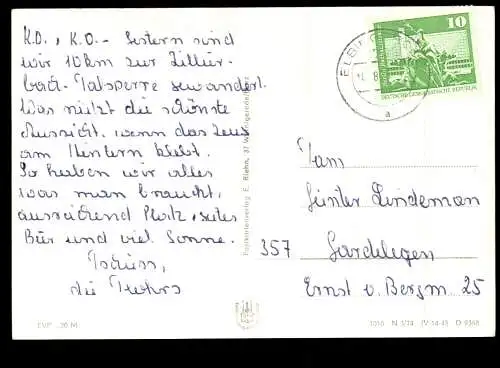 K.O., K.O.- Gestern sind
wir 10 km zur Zillier-
bach-Talsperre gewandert.
Was nützt die schönste
Aussicht, wenn das Zeug
am Hintern klebt.
So haben wir alles
was man braucht,
ausreichend Platz, gutes
Bier und viel Sonne.
Tschüss,
die
Postkartenverlag E. Riehn, 37 Wernigerode/Harz
EVP -,20 M
10
DEUTSCHE DEMOKRATISCHE REPUBLIK
a
Fam
Günter Lindeman
357 Gardelegen
Ernst v. Bergm. 25
N 1/74 IV-14-45 D 9368